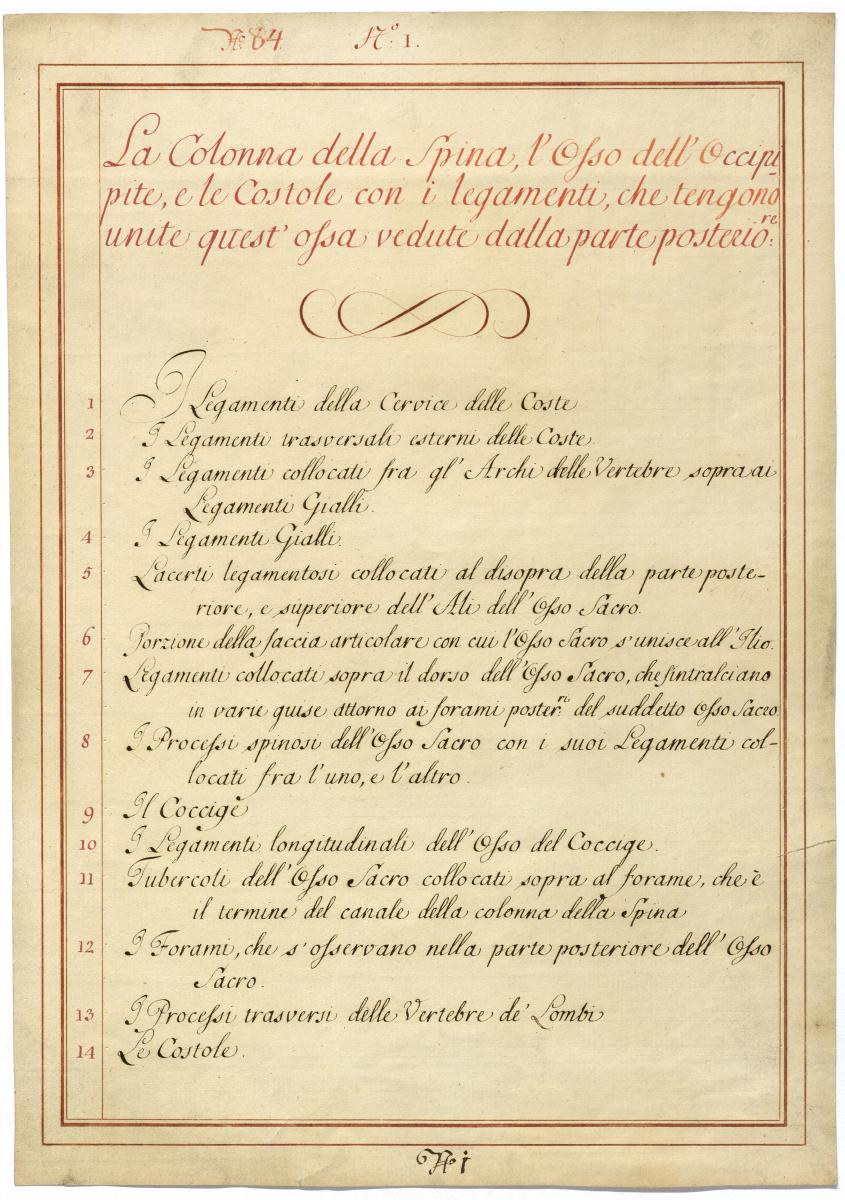 No. 84. No. 1.
La Colonna della Spina, l'Osso dell'Occipi-
pite, e le Costole con i legamenti, che tengono
unite quest'ossa vedute dalla parte posteriore:
1 I Legamenti della Cervice delle Coste
2 I Legamenti trasversali esterni delle Coste.
3 I Legamenti collocati fra gl'Archi delle Vertebre sopra ai
Legamenti Gialli.
4 I Legamenti Gialli.
5 Lacerti legamentosi collocati al disopra della parte poste-
riore, e superiore dell'Ali dell'Osso Sacro.
6 Porzione della faccia articolare con cui l'Osso Sacro s'unisce all'Ilio.
7 Legamenti collocati sopra il dorso dell'Osso Sacro, che s'intralciano
in varie guise attorno ai forami poster.ri del suddetto Osso Sacro
8 I Processi spinosi dell'Osso Sacro con i suoi Legamenti col-
locati fra l'uno, e l'altro.
9 Il Coccige
10 I Legamenti longitudinali dell'Osso del Coccige.
11 Tubercoli dell'Osso Sacro collocati sopra al forame, che è
il termine del canale della colonna della Spina
12 I Forami, che s'osservano nella parte posteriore dell'Osso
Sacro.
13 I Processi trasversi delle Vertebre de' Lombi
14 Le Costole.
No. 1